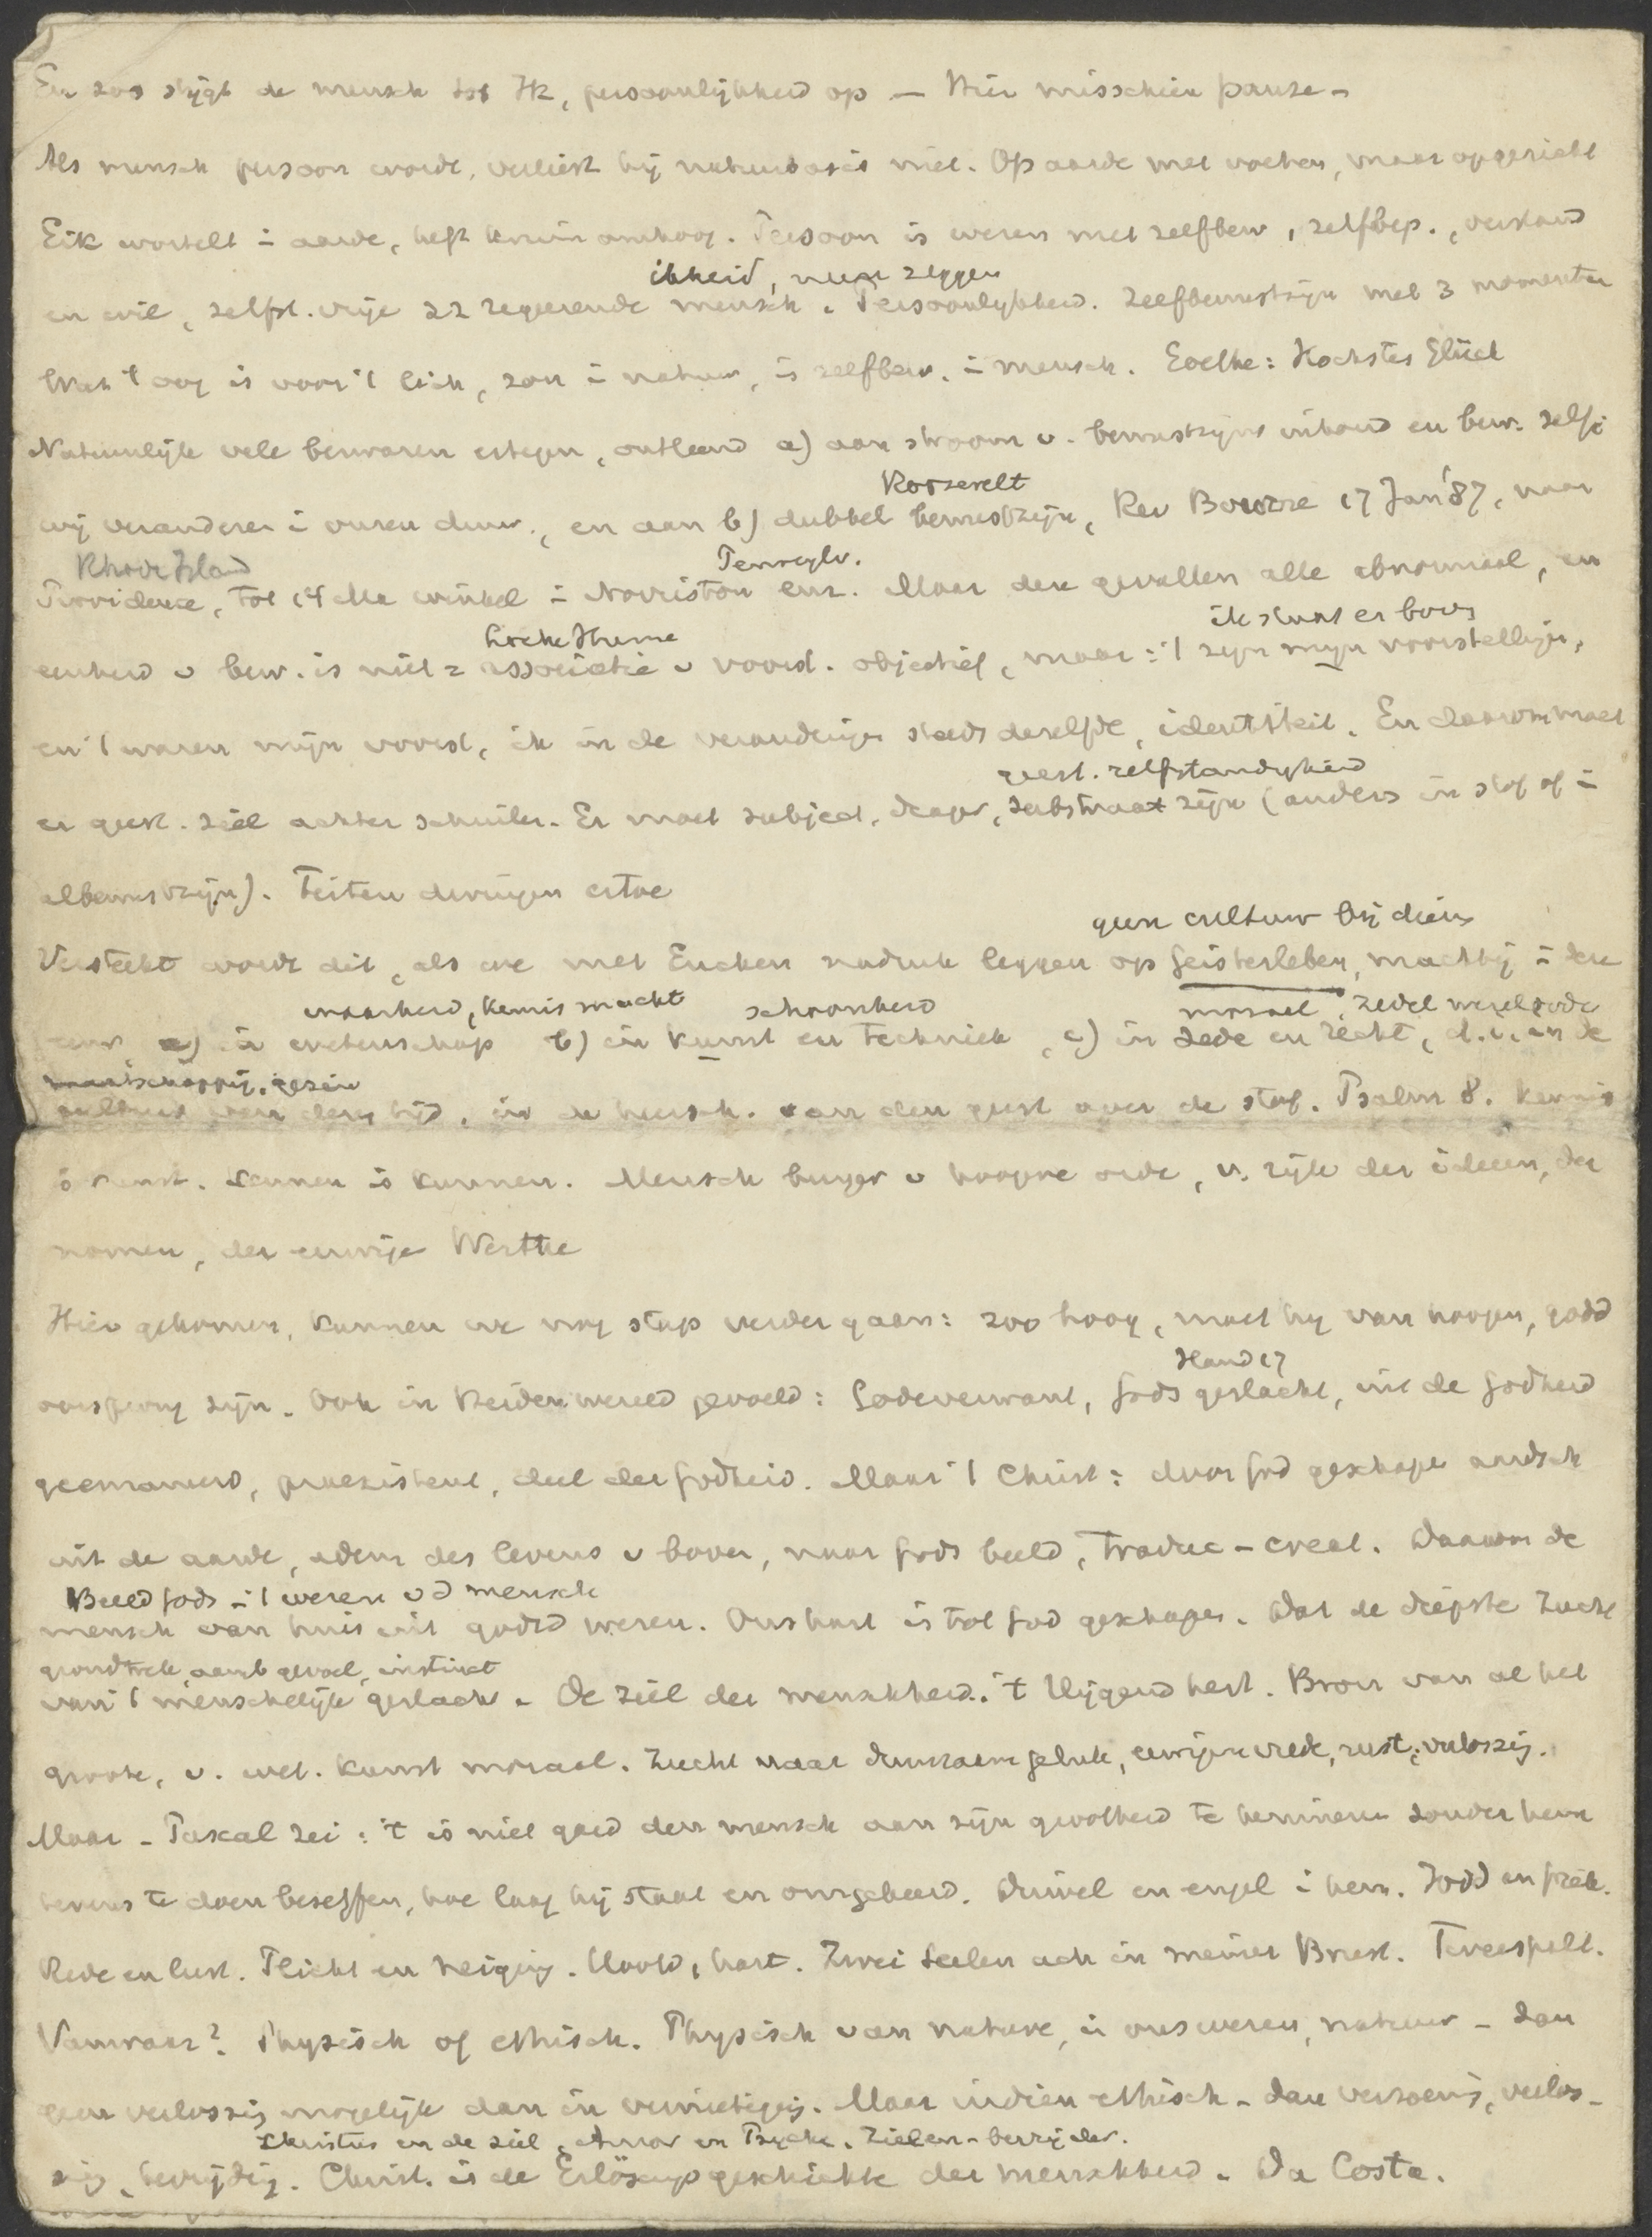 En zoo stijgt de mensch tot Ik, persoonlijkheid op — Hier misschien pauze —
Als mensch persoon wordt, verliest hij natuurbasis niet. Op aarde met voeten, maar opgericht
Eik wortelt i aarde, heft kruin omhoog. Persoon is wezen met zelfbew, zelfbep., verstand
ikheid, neen zeggen
en wil, zelfst. vrije zz regeerende mensch. Persoonlykheid. Zelfbewustzijn met 3 momenten
Wat 't oog is voor 't lich, zon i natuur, is zelfbew. i mensch. Goethe: Hochstes Glück
Natuurlijk vele bezwaren ertegen, ontleend a) aan stroom v. bewustzijns inhoud en bew. zelf:
Roosevelt
wij veranderen i onzen duur, en aan b) dubbel bewustzijn, Rev Bourne 17 Jan '87, naar
Rhode Island
Pensylv.
Providence, tot 14 Ma winkel i Norriston enz. Maar deze gevallen alle abnormaal, en
Locke Hume
ik staat er boven
eenheid v bew. is niet = associatie v voorst. objectief, maar: 't zijn mijn voorstellingen,
en 't waren mijn voorst, ik in de veranderingen steeds dezelfde, identiteit. En daarom moet
geest. zelfstandigheid
er geest. ziel achter schuilen. Er moet subject, drager, substraat zijn (anders in stof of i
albewustzijn). Feiten dwingen ertoe
geen cultuur bij dieren
Versterkt wordt dit, als we met Eucken nadruk leggen op Geistesleben, machtig i den
waarheid, kennis macht
schoonheid
moraal, zedel wereldorde
a) in wetenschap b) in kunst en techniek, c) in zede en recht, d. i. in de
maatschappij, gezin
cultuur van dezen tijd, in de heersch. van den geest over de stof. Psalm 8. Kennis
is kunst. Kennen is kunnen. Mensch burger v hoogere orde, v. rijk der ideeen, der
normen, der eeuwige Werthe
Hier gekomen, kunnen we nog stap verder gaan: zoo hoog, moet hij van hoogen, godd
Hand 17
oorsprong zijn. Ook in Heidenwereld gevoeld: Godeverwant, Gods geslacht, uit de Godheid
geemaneerd, praeexistent, deel der Godheid. Maar 't Christ: door God geschapen aardsch
uit de aarde, adem des levens v boven, naar Gods beeld, Traduc - creat. Daarom de
Beeld Gods i 't wezen vd mensch
mensch van huis uit godsd wezen. Ons hart is tot God geschapen. Dat de diepste zucht
grondtrek, aangb gevoel, instinct
van 't menschelijk geslacht. De ziel der menschheid. 't Hijgend hert. Bron van al het
groote, v. wet. kunst moraal. Zucht naar duurzaam geluk, eeuwigen vrede, rust, verlossing.
Maar - Pascal zei: 't is niet goed den mensch aan zijn grootheid te herinneren zonder hem
tevens te doen beseffen, hoe laag hij staat en omgekeerd. Duivel en engel i hem.
Rede en lust. Plicht en neiging. Hoofd, hart. Zwei Seelen ach in meiner Brust. Tweespalt.
Vanwaar? Physisch of ethisch. Physisch van nature, in ons wezen, natuur - dan
geen verlossing mogelijk dan in vernietiging. Maar indien ethisch - dan verzoening, verlos-
Christus en de ziel, Amor en Psyche. Zielen-bevrijder.
sing, bevrijding. Christ. is de Erlösungsgeschichte der menschheid. Da Costa.